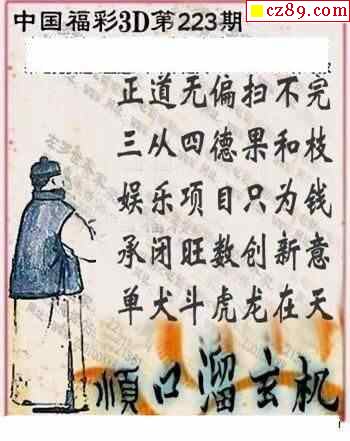 cz89.com
中国福彩3D第223期
正道无偏扫不完
三从四德果和枝
娱乐项目只为钱
承闭旺数创新意
单犬斗虎龙在天
顺口溜玄机